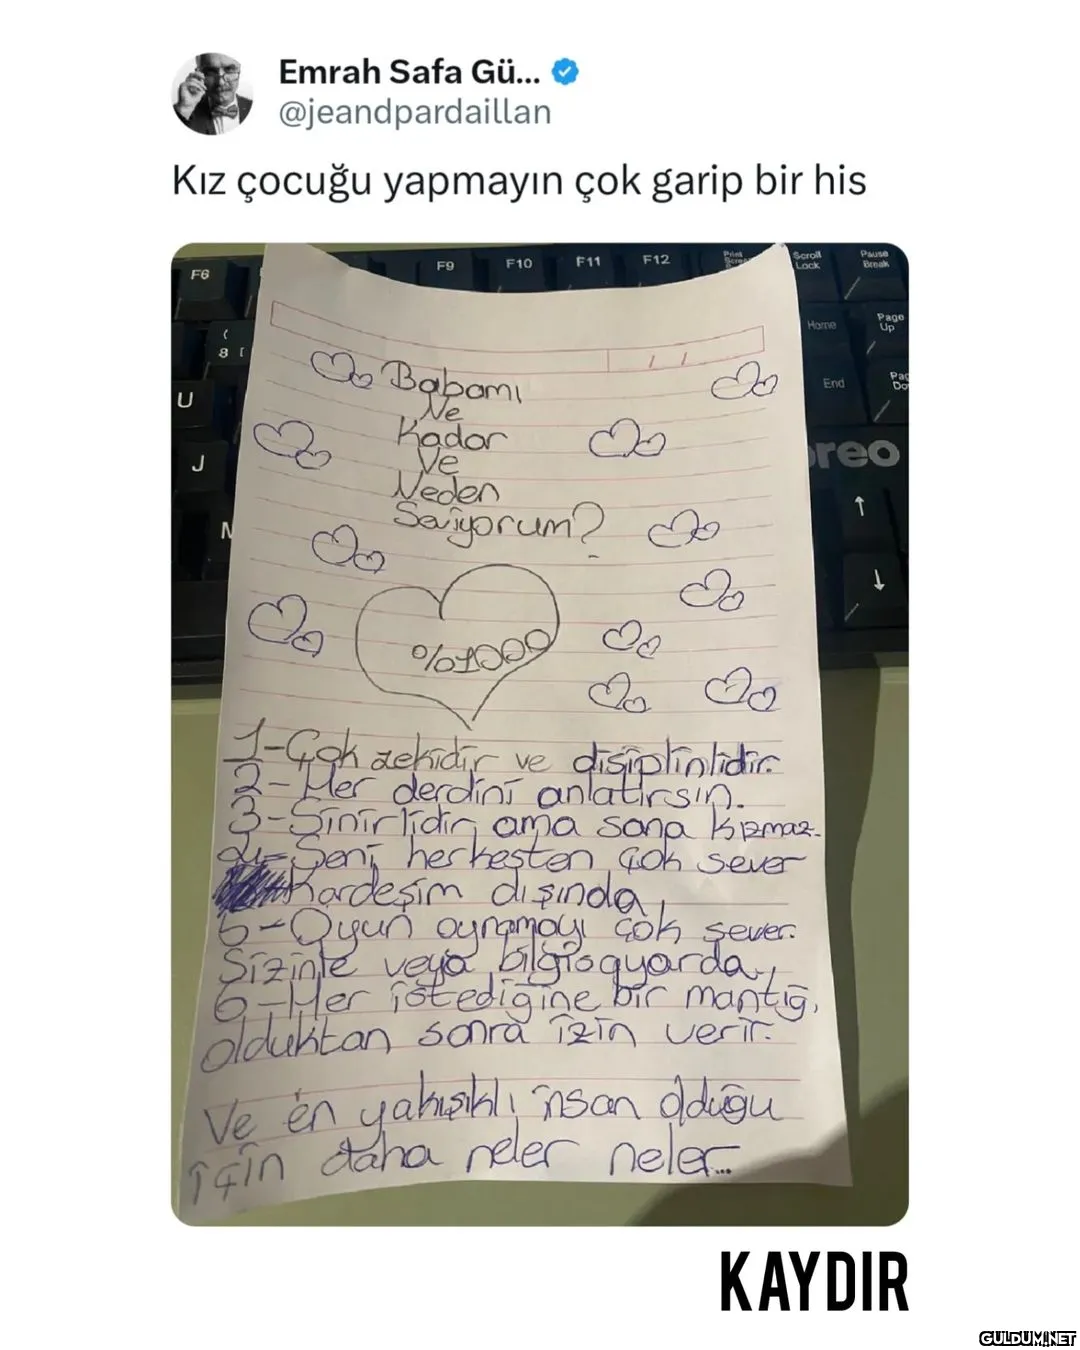 Emrah Safa Gü...
@jeandpardaillan
Kız çocuğu yapmayın çok garip bir his
F6
F9
F10
F11
F12
Print
Scroll
Lock
Pause
Break
(
8 [
Home
Page
Up
U
End
J
reo
Babamı
Ne
Kadar
Ve
Neden
Seviyorum?
%1000
1-Çok zekidir ve disiplinlidir.
2-Her derdini anlatırsın.
3-Sinirlidir, ama sana kızmaz.
4-Seni herkesten çok sever
Kardeşim dışında,
5-Oyun oynamayı çok sever.
Sizinle veya bilgisayarda,
6-Her istediğine bir mantığ,
olduktan sonra izin verir.
Ve en yakışıklı insan olduğu
için daha neler neler...
KAYDIR
GULDUM.NET